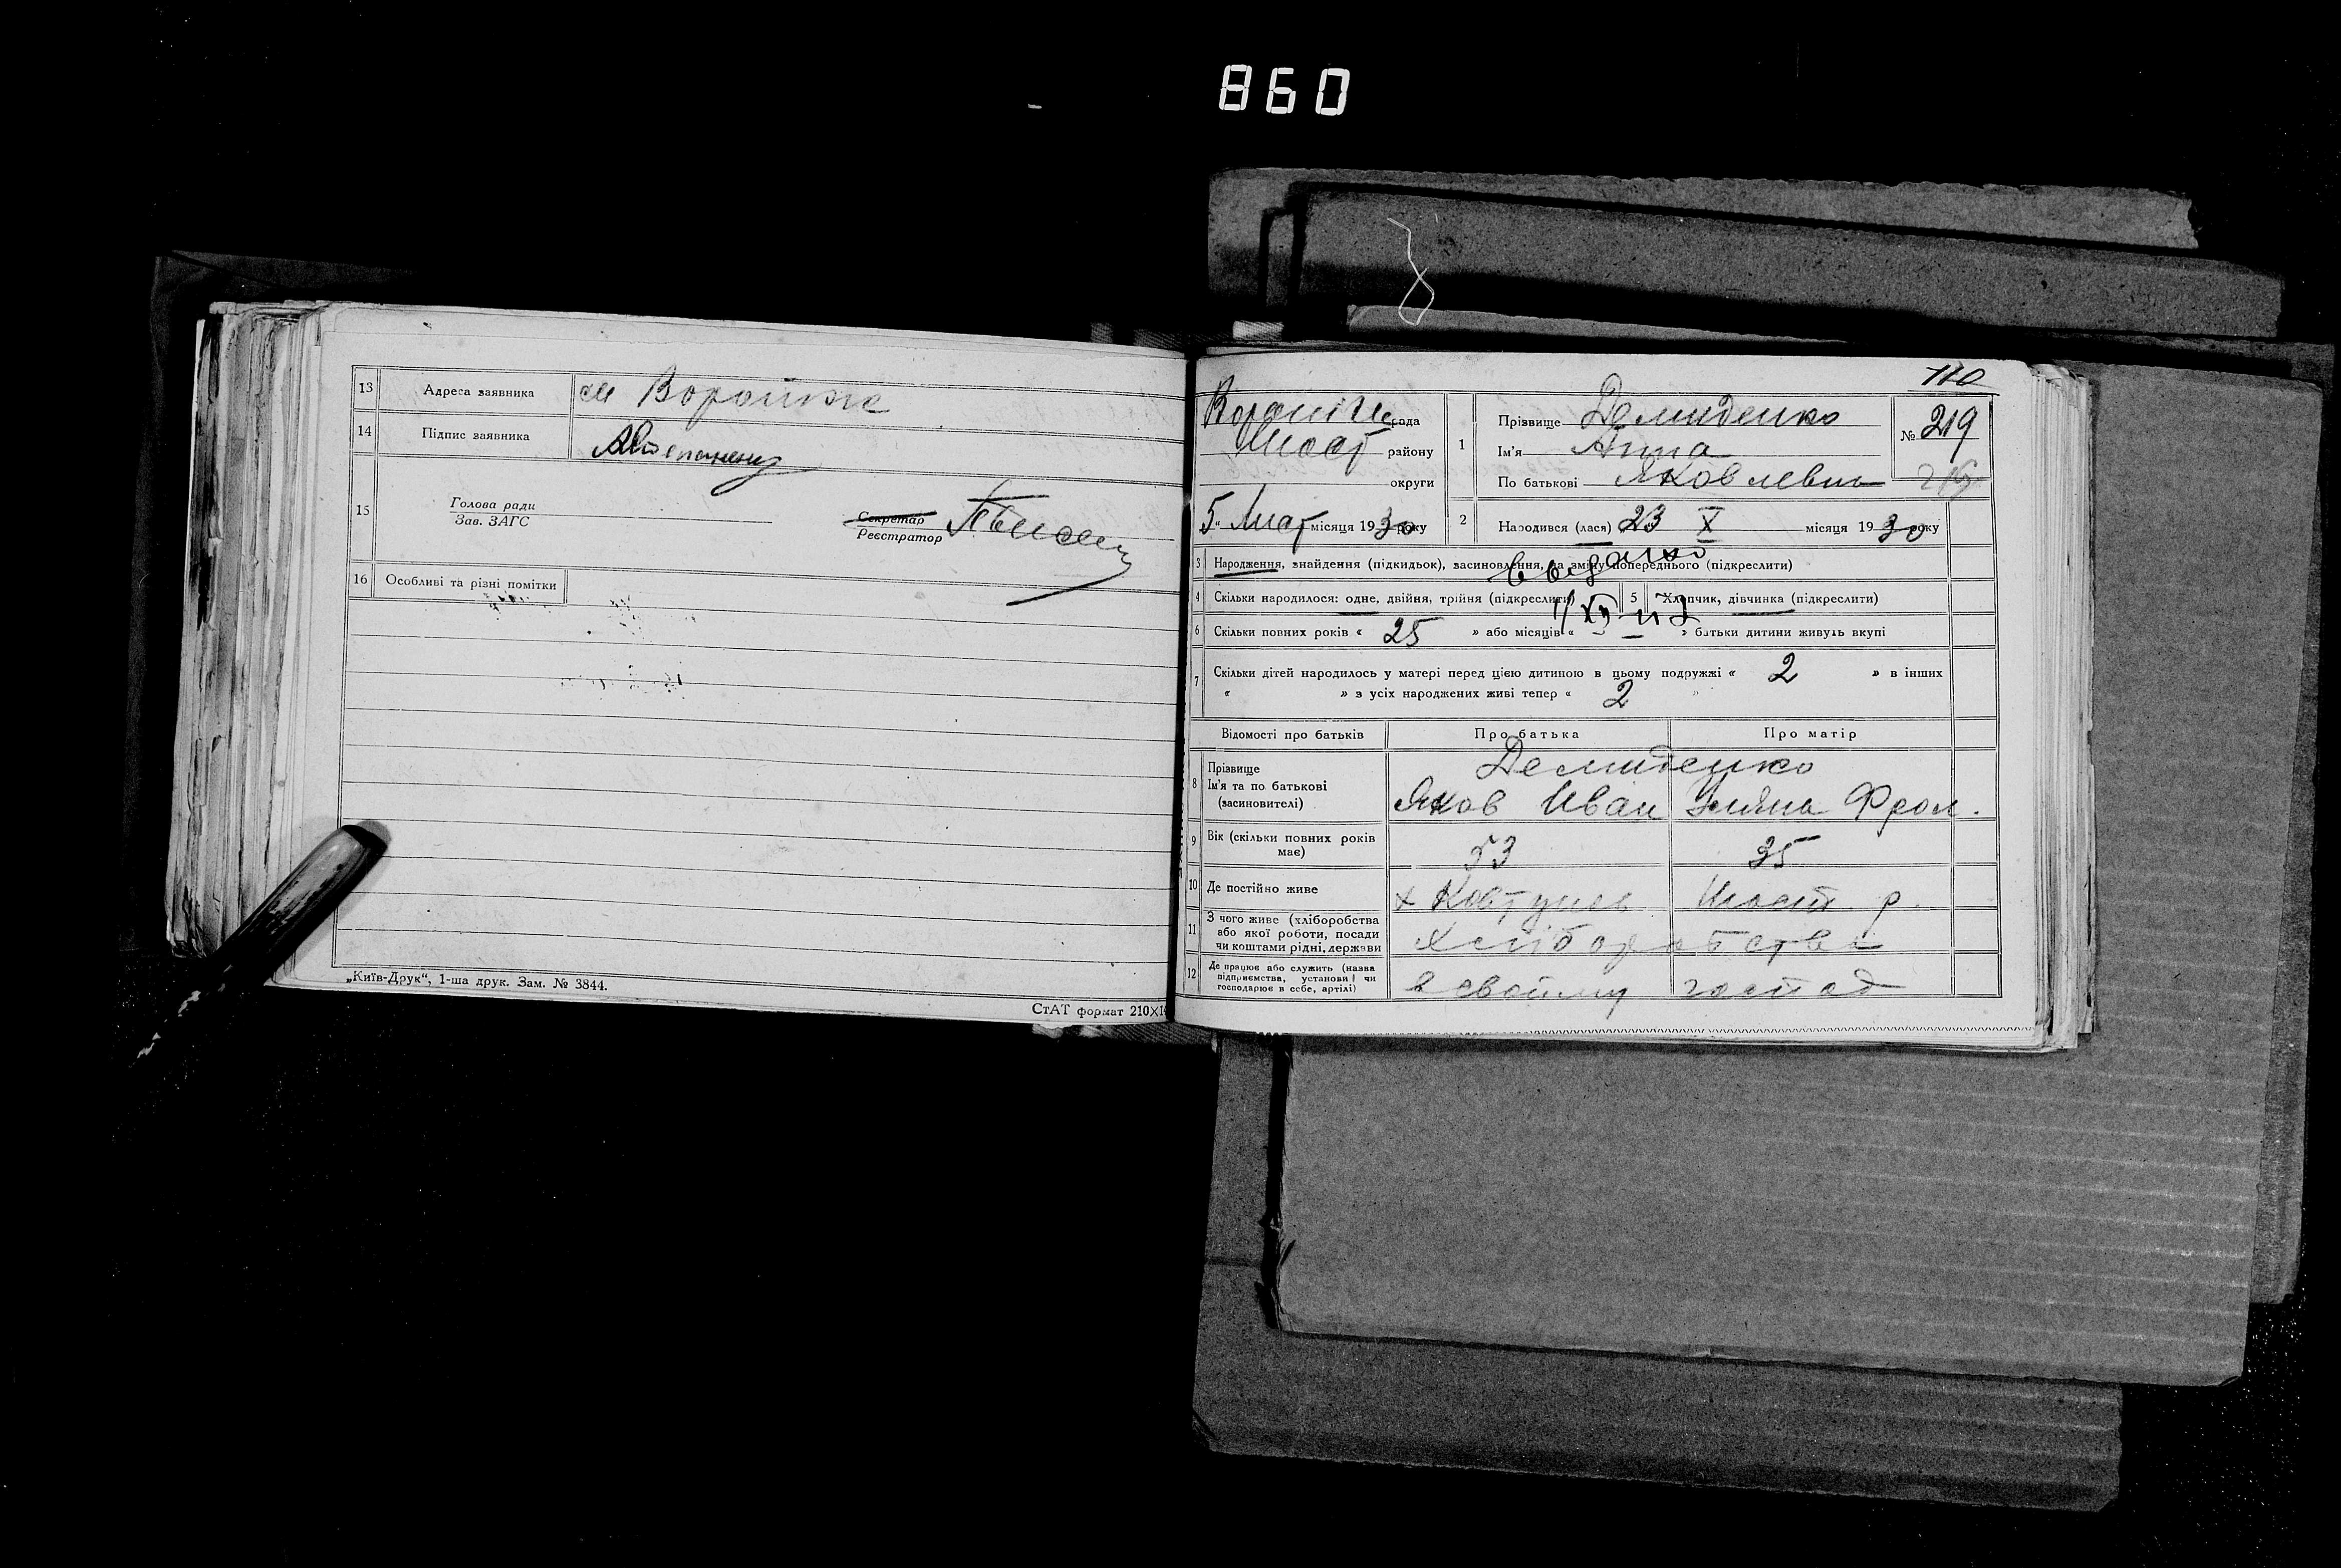 860
13 Адреса заявника см Вороніж
14 Підпис заявника
15 Голова ради
Зав. ЗАГС
Секретар
Реєстратор
16 Особливі та різні помітки
„Київ-Друк“, 1-ша друк. Зам. № 3844.
СтАТ формат 210×1
110
рада
Шост району
округи
5 „ Лист місяця 1930 року
1 Прізвище Демиденко
Ім'я Анна
По батькові Яковлевна
№ 219
2 Народився (лася) 23 X місяця 1930 року
3 Народження, знайдення (підкидьок), засиновлення, на зміну попереднього (підкреслити)
видано
4 Скільки народилося: одне, двійня, трійня (підкреслити) 5 Хлопчик, дівчинка (підкреслити)
6 Скільки повних років « 25 » або місяців « – » батьки дитини живуть вкупі
7 Скільки дітей народилось у матері перед цією дитиною в цьому подружжі « 2 » в інших
« » з усіх народжених живі тепер « 2 »
Відомості про батьків Про батька Про матір
8 Прізвище
Ім'я та по батькові
(засиновителі)
Демиденко
Яков Иван Фрол.
9 Вік (скільки повних років
має)
53 35
10 Де постійно живе х Шост р.
11 З чого живе (хліборобства
або якої роботи, посади
чи коштами рідні, держави
хліборобства
12 Де працює або служить (назва
підприємства, установи і чи
господарює в себе, артілі)
в свойму господ